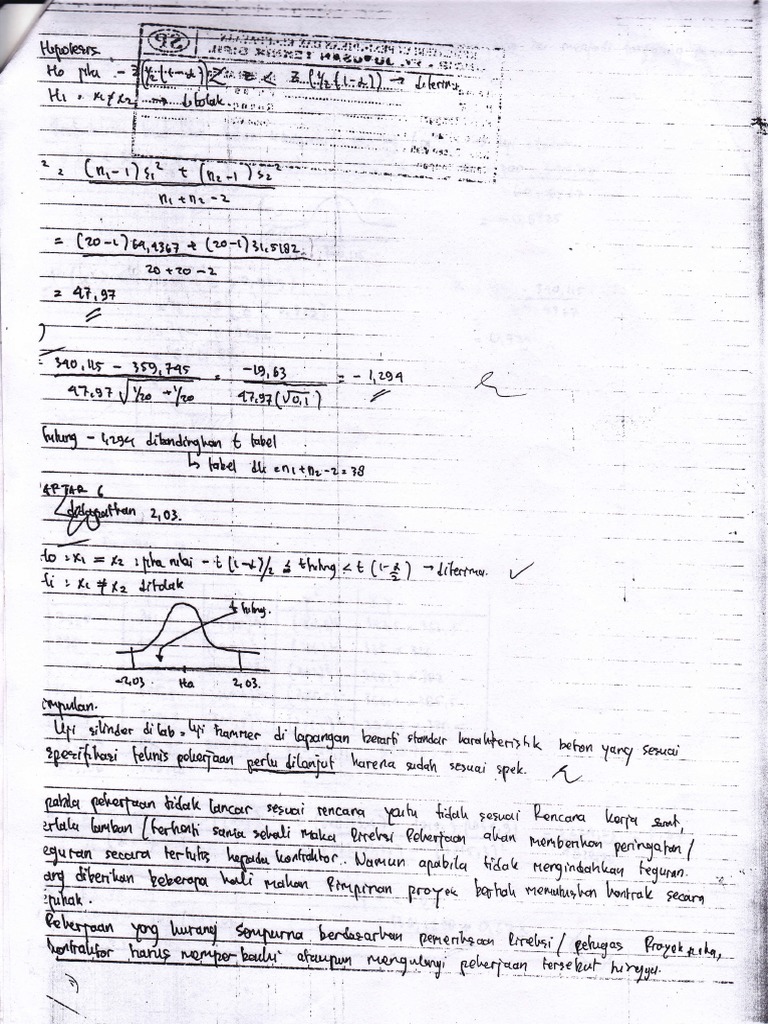 Hipotesis.
Ho jika - Z(½(1-α)) < z < Z (½(1-α)) → diterima
H1 = x1 ≠ x2 → ditolak.
² = (n1-1) s1² + (n2-1) s2²
n1 + n2 - 2
= (20-1) 64,4367 + (20-1) 31,5182
20 + 20 - 2
= 47,97
= 340,115 - 359,745 = -19,63 = - 1,294
47,97 √1/20 + 1/20 47,97 (√0,1)
hitung - 1,294 dibandingkan t tabel
↳ tabel dk = n1 + n2 - 2 = 38
AFTAR 6
didapatkan 2,03.
Ho : x1 = x2 : jika nilai - t (1-α)/2 ≤ t hitung < t (1-α/2) → diterima.
Hi : x1 ≠ x2 ditolak
t hitung.
-2,03 Ha 2,03.
mpulan.
Uji silinder di lab = Uji hammer di lapangan berarti standar karakteristik beton yang sesuai
spesifikasi teknis pekerjaan perlu dilanjut karena sudah sesuai spek.
pabila pekerjaan tidak lancar sesuai rencana yaitu tidak sesuai Rencana kerja
erlalu lamban / terhenti sama sekali maka Direksi Pekerjaan akan memberikan peringatan /
eguran secara tertulis kepada kontraktor. Namun apabila tidak mengindahkan teguran.
ang diberikan beberapa kali makan Pimpinan proyek berhak memutuskan kontrak secara
epihak.
Pekerjaan yang kurang sempurna berdasarkan pemeriksaan Direksi / petugas Proyek maka,
kontraktor harus memperbaiki ataupun mengulangi pekerjaan tersebut hingga.